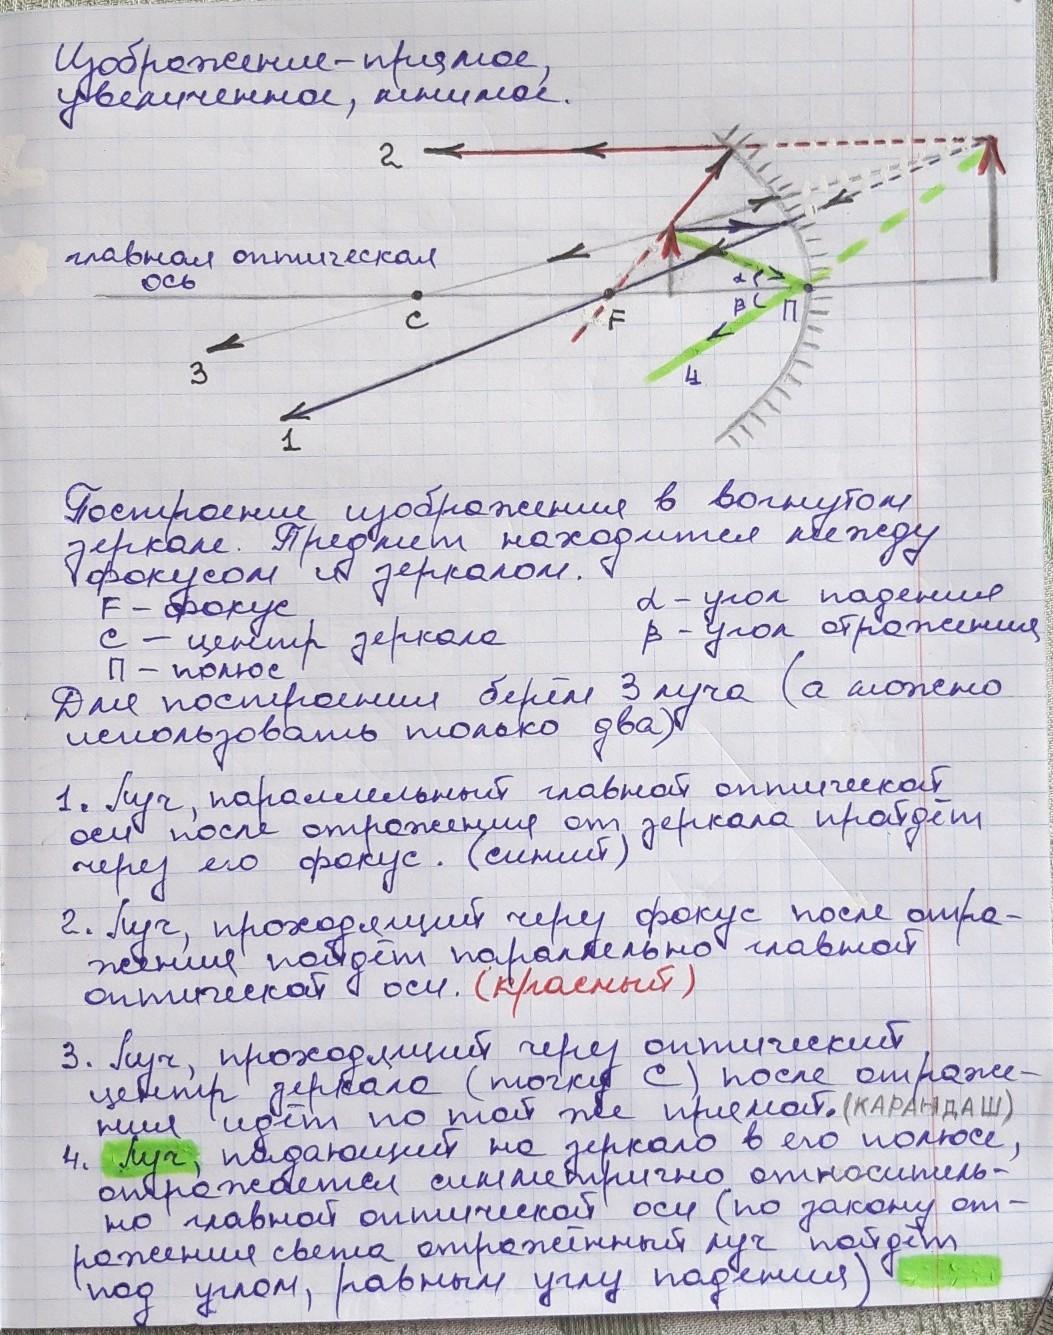 Изображение - прямое,
увеличенное, мнимое.
2
главная оптическая
ось
α
β
C
F
П
3
4
1
Построение изображения в вогнутом
зеркале. Предмет находится между
фокусом и зеркалом.
F - фокус
α - угол падения
C - центр зеркала
β - угол отражения
П - полюс
Для построения берём 3 луча (а можно
использовать только два)
1. Луч, параллельный главной оптической
оси после отражения от зеркала пройдёт
через его фокус. (синий)
2. Луч, проходящий через фокус после отра-
жения пойдёт параллельно главной
оптической оси. (красный)
3. Луч, проходящий через оптический
центр зеркала (точку C) после отраже-
ния идёт по той же прямой. (КАРАНДАШ)
4. Луч, падающий на зеркало в его полюсе,
отражается симметрично относитель-
но главной оптической оси (по закону от-
ражения света отражённый луч пойдёт
под углом, равным углу падения)